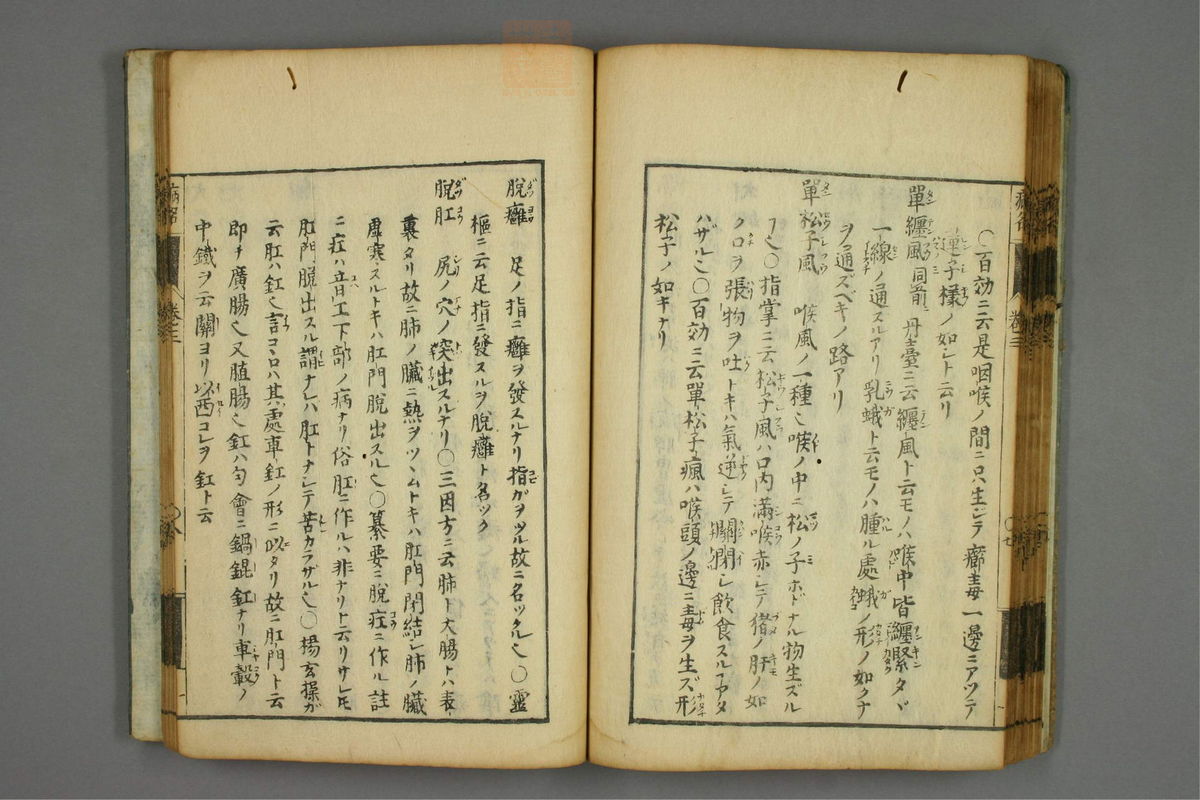 〇百効ニ云是咽喉ノ間ニ只生ジテ癤毒一邊ニアツテ
蓮子樣ノ如シト云リ
單纏風 同前 丹臺ニ云纏風ト云モノハ喉中皆纏緊タヾ
一線ノ通スルアリ乳蛾ト云モノハ腫ル處蛾ノ形ノ如クナ
ヲ通ズベキノ路アリ
單松子風 喉風ノ一種也喉ノ中ニ松ノ子ホドナル物生ズル
〇指掌ニ云松子風ハ口内滿喉赤シテ猪ノ肝ノ如
ノ口ヲ張物ヲ吐トキハ氣逆シテ關閉シ飲食スルヿアタ
ハザル也〇百効ニ云單松子瘋ハ喉頭ノ邊ニ毒ヲ生ズ形
松子ノ如キナリ
病名 卷之三
脫癰 足ノ指ニ癰ヲ發スルナリ指ガヲツル故ニ名ツクル也〇靈
樞ニ云足指ニ發スルヲ脫癰ト名ツク
脫肛 尻ノ穴ノ突出スルナリ〇三因方ニ云肺ト大腸トハ表
裏タリ故ニ肺ノ臟ニ熱ヲツヽムトキハ肛門閉結シ肺ノ臟
虛寒スルトキハ肛門脫出スル也〇纂要ニ脫疘ニ作ル註
ニ疘ハ音工下部ノ病ナリ俗肛ニ作ルハ非ナリト云リサレ𪜈
肛門脫出スル謂ナレハ肛トナシテ苦カラザル也〇楊玄操ガ
云肛ハ釭也言コヽロハ其處車釭ノ形ニ似タリ故ニ肛門ト云
即チ廣腸也又䐈腸也釭ハ勻會ニ鍋錕釭ナリ車轂ノ
中ノ鐵ヲ云關ヨリ以西コレヲ釭ト云
病名 卷之三